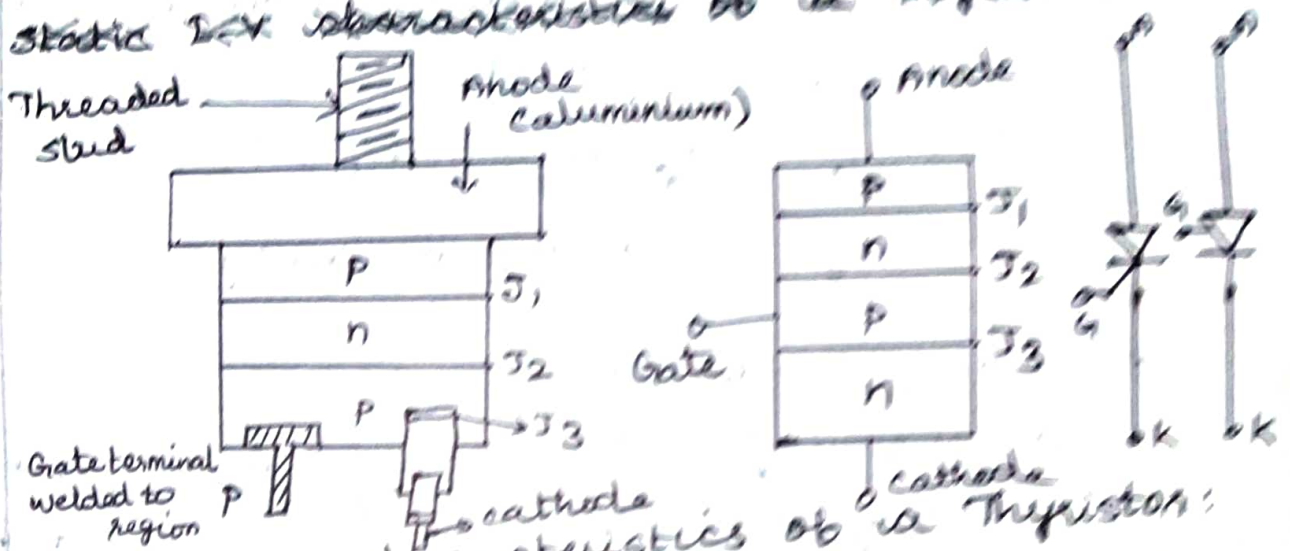 Static I-V characteristics of a
Threaded
stud
Anode
(aluminium)
P
J1
n
J2
P
J3
Gate terminal
welded to P
region
cathode
Anode
P
J1
n
J2
P
J3
n
Gate
cathode
A
G
K
A
G
K
of a Thyristor: